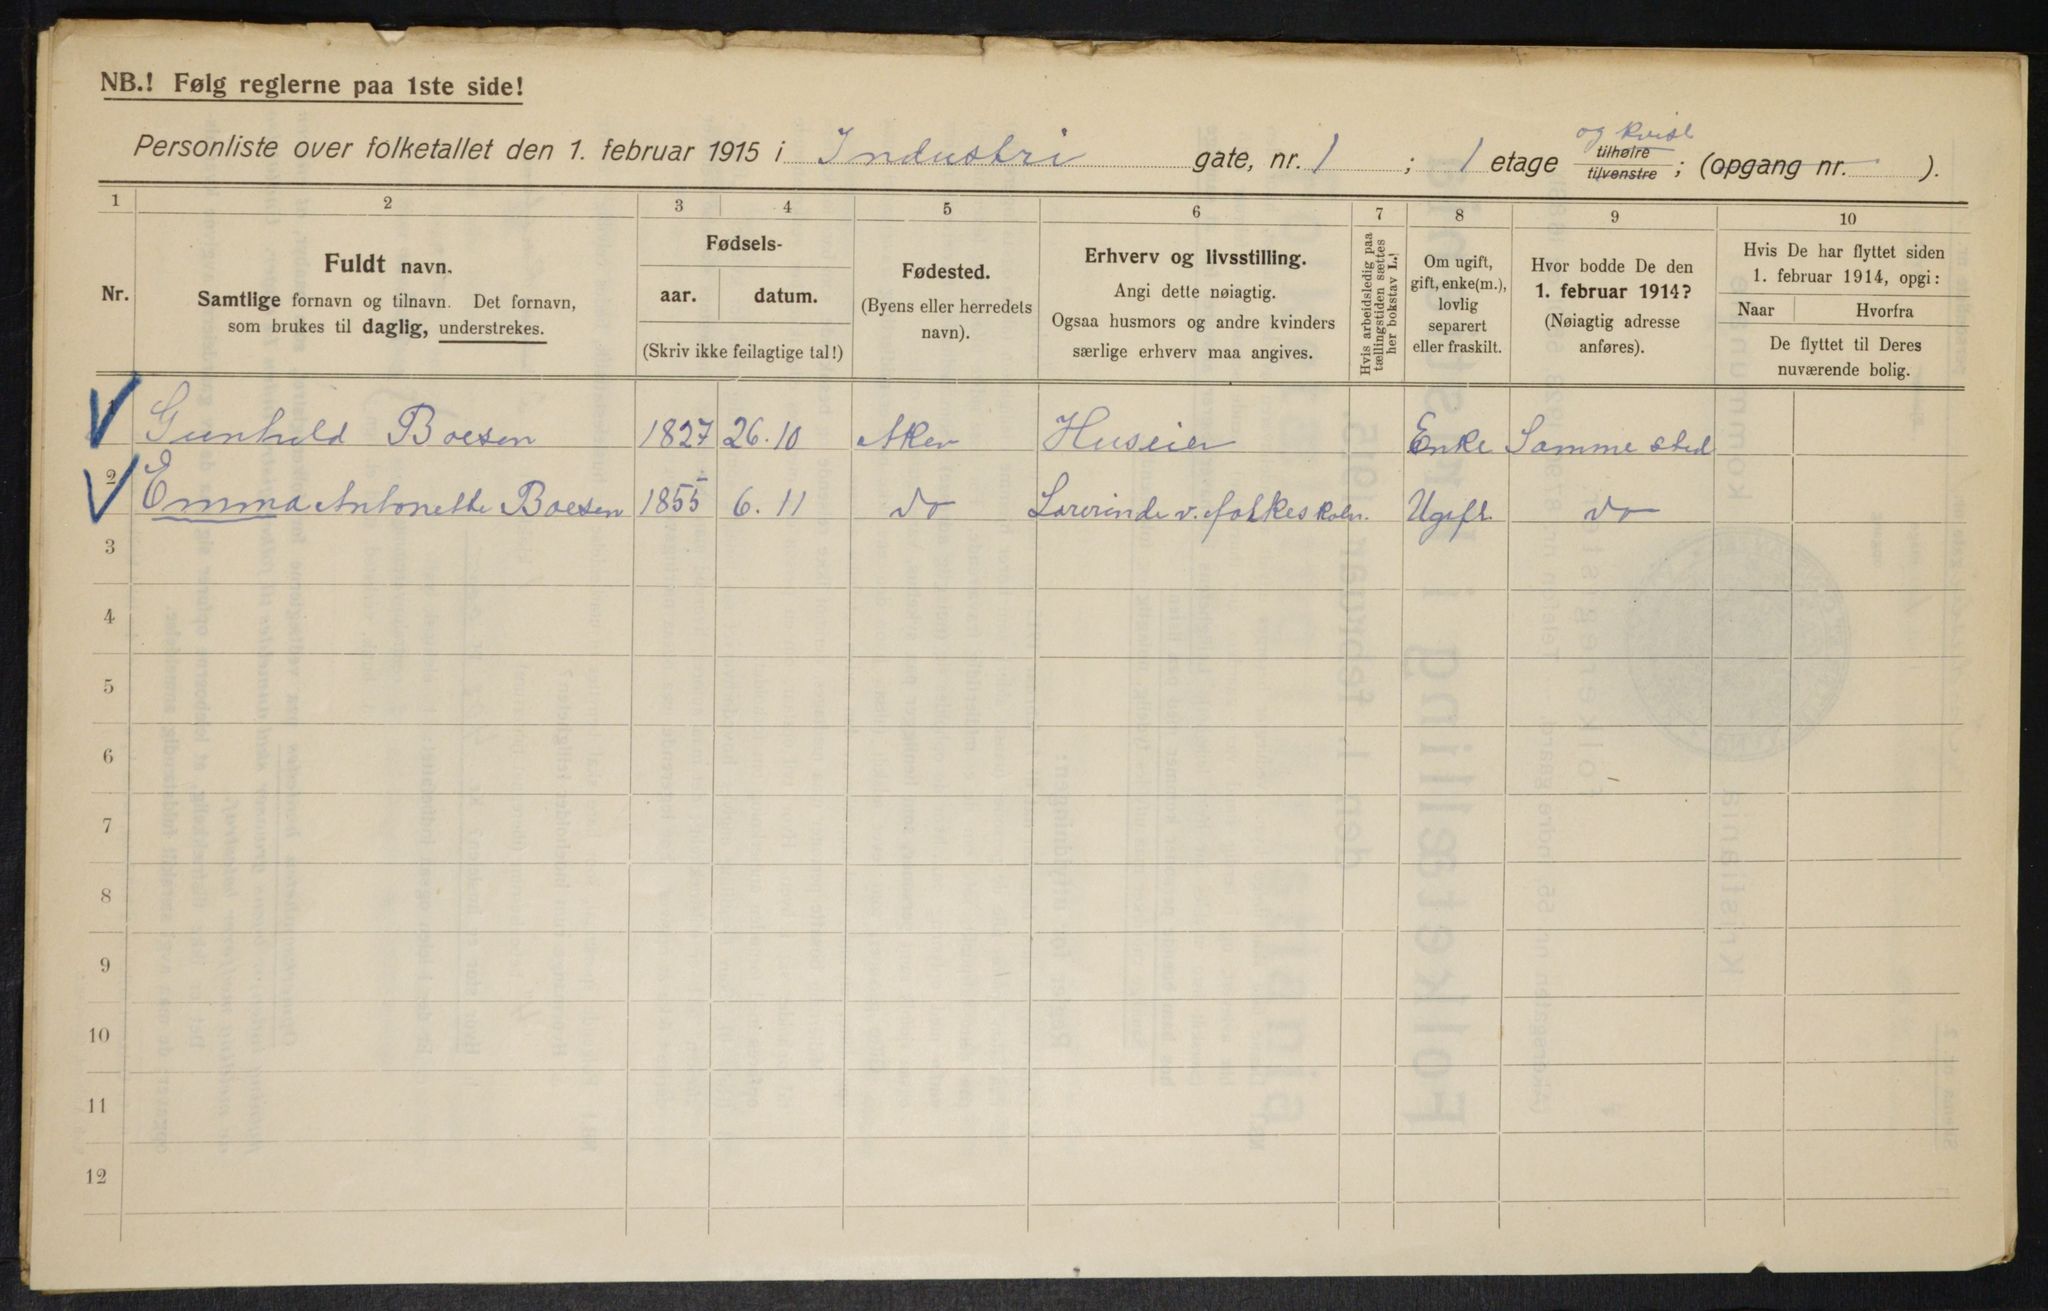 NB.! Følg reglerne paa 1ste side!
og kvist
Personliste over folketallet den 1. februar 1915 i Industri gate, nr. 1 ; 1 etage tilhøire tilvenstre ; (opgang nr. ).
1 2 3 4 5 6 7 8 9 10
Nr.
Fuldt navn.
Samtlige fornavn og tilnavn. Det fornavn,
som brukes til daglig, understrekes.
Fødsels-
aar. datum.
(Skriv ikke feilagtige tal!)
Fødested.
(Byens eller herredets
navn).
Erhverv og livsstilling.
Angi dette nøiagtig.
Ogsaa husmors og andre kvinders
særlige erhverv maa angives.
Hvis arbeidsledig paa
tællingstiden sættes
her bokstav L.!
Om ugift,
gift, enke(m.),
lovlig
separert
eller fraskilt.
Hvor bodde De den
1. februar 1914?
(Nøiagtig adresse
anføres).
Hvis De har flyttet siden
1. februar 1914, opgi:
Naar Hvorfra
De flyttet til Deres
nuværende bolig.
1 Gunhild Boesen 1827 26.10 Aker Huseier Enke Samme sted
2 Emma Antonette Boesen 1855 6.11 do Lærerinde v. folkeskoln. Ugift do
3
4
5
6
7
8
9
10
11
12